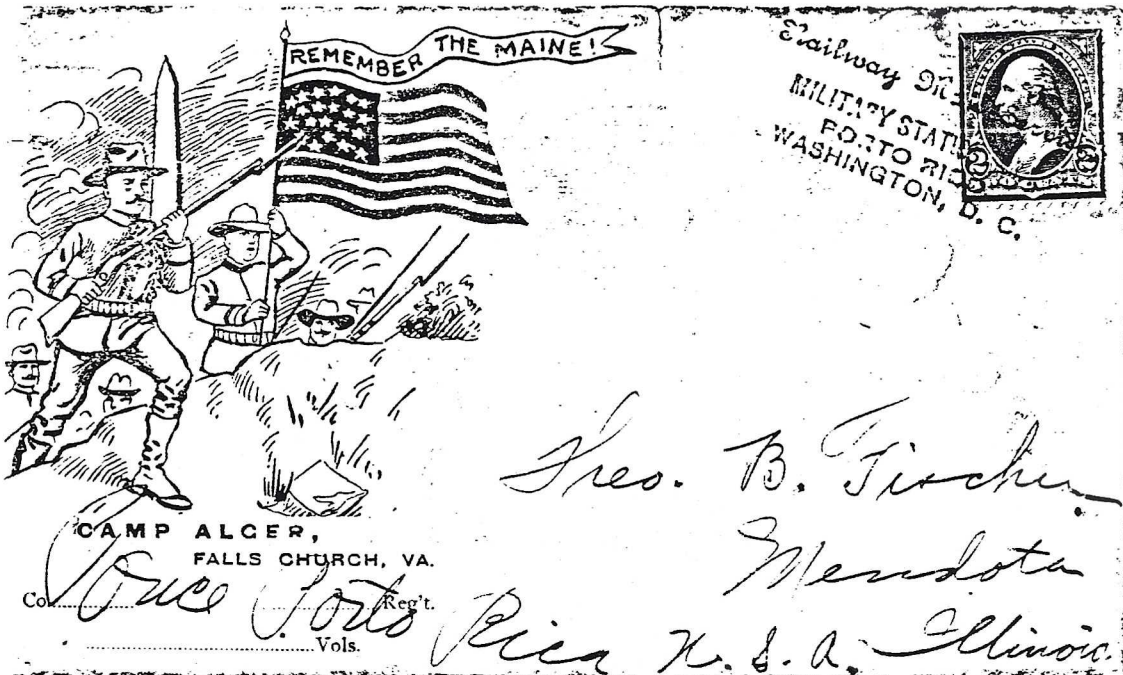 REMEMBER THE MAINE!
Railway
MILITARY STATI
PORTO RIC
WASHINGTON, D. C.
2 2
Theo. B. Fischer
Mendota
Illinois.
CAMP ALGER,
FALLS CHURCH, VA.
Co. Reg't.
Vols.
Ponce Porto Rica U. S. A.